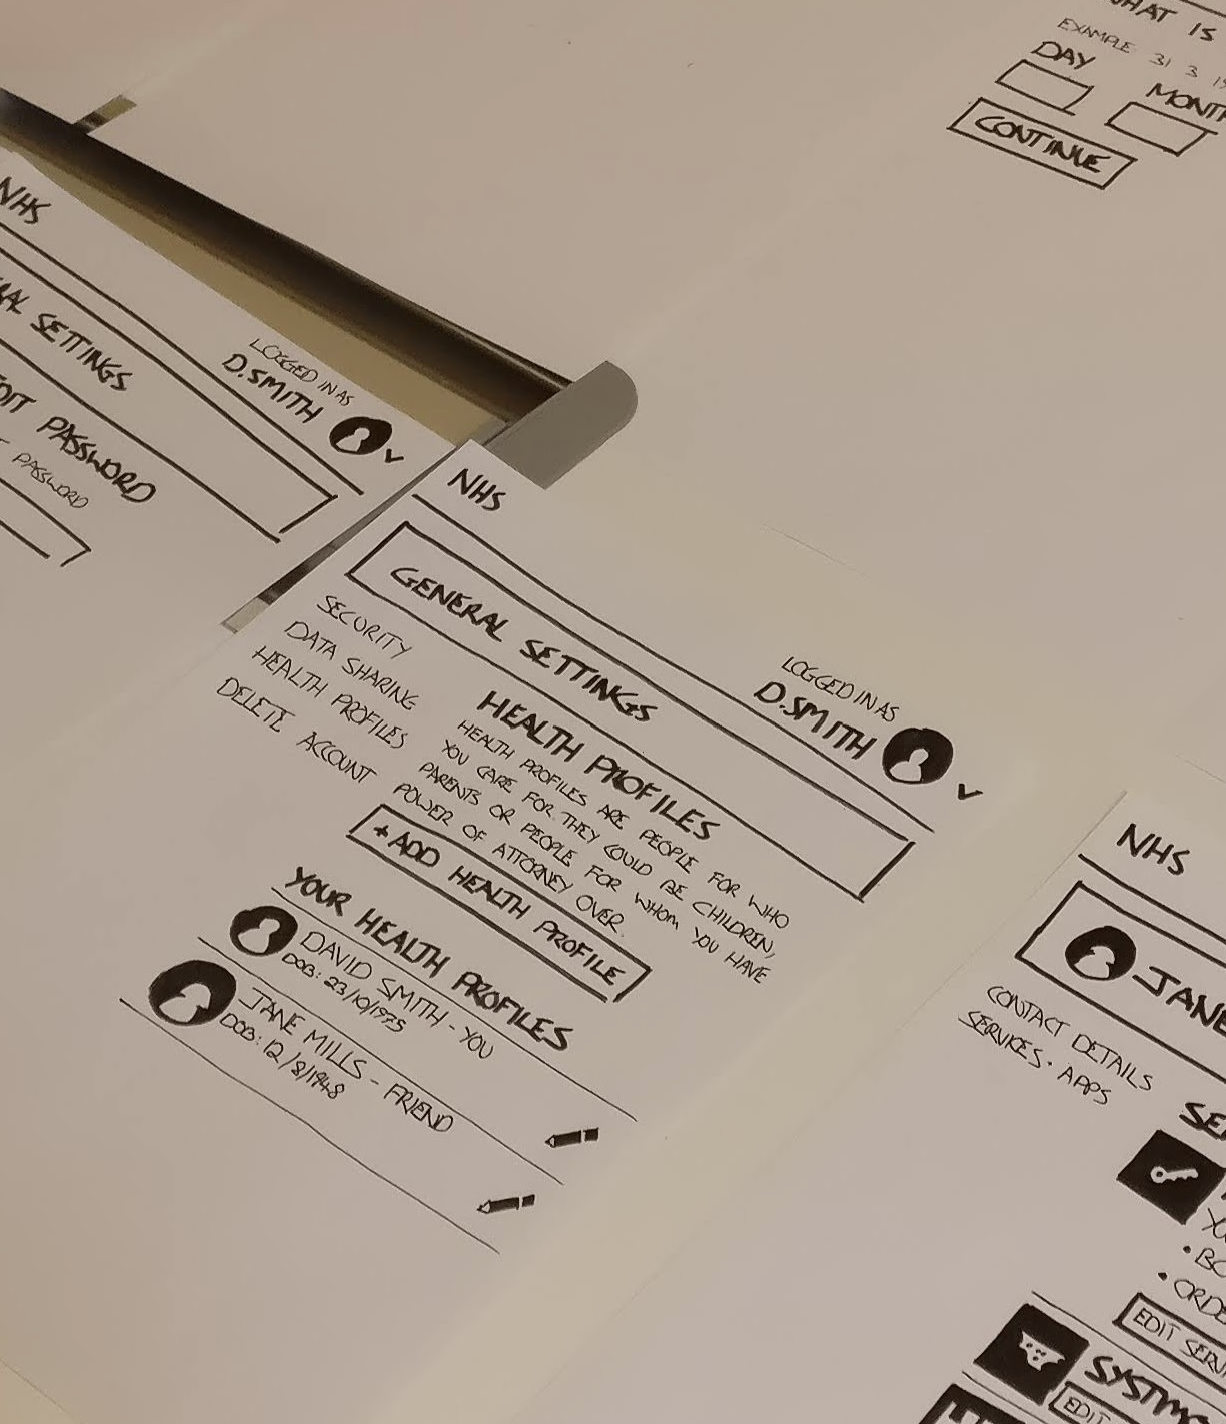 WHAT IS
EXAMPLE 31 3
DAY
MONTH
CONTINUE
NHS
LOGGED IN AS
D.SMITH
SETTINGS
PASSWORD
PASSWORD
NHS
LOGGED IN AS
D.SMITH
GENERAL SETTINGS
SECURITY
DATA SHARING
HEALTH PROFILES
DELETE ACCOUNT
HEALTH PROFILES
HEALTH PROFILES ARE PEOPLE FOR WHO
YOU CARE FOR. THEY COULD BE CHILDREN,
PARENTS OR PEOPLE FOR WHOM YOU HAVE
POWER OF ATTORNEY OVER.
+ADD HEALTH PROFILE
YOUR HEALTH PROFILES
DAVID SMITH - YOU
DOB: 23/10/1975
JANE MILLS - FRIEND
DOB: 12/8/1948
NHS
JANE
CONTACT DETAILS
SERVICES · APPS
EDIT